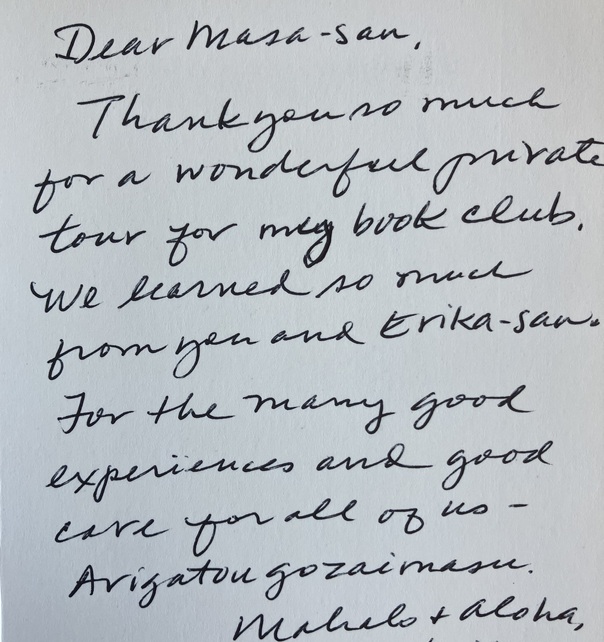 Dear Masa-san,
Thank you so much
for a wonderful private
tour for my book club.
We learned so much
from you and Erika-san.
For the many good
experiences and good
care for all of us -
Arigatou gozaimasu.
Mahalo + aloha,